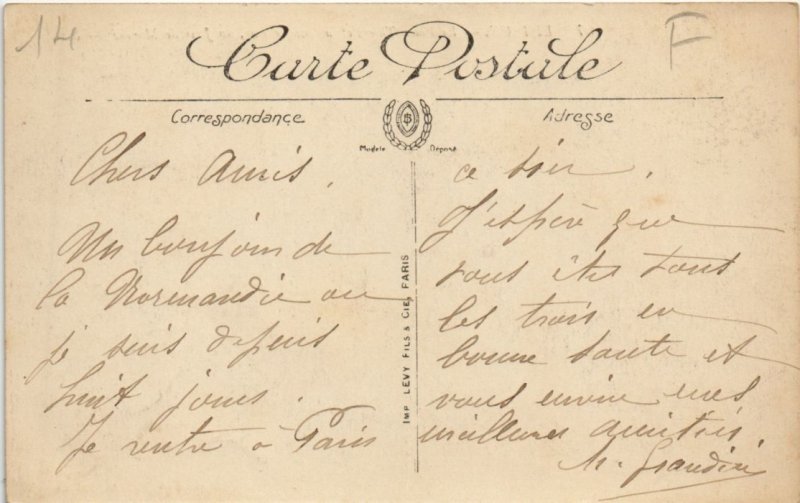 14
F
Carte Postale
Correspondance
Adresse
Modèle Déposé
Chers Amis.
Un bonjour de
la Normandie ou
je suis depuis
huit jours.
Je rentre à Paris
ce soir.
J'espère que
vous êtes tous
les trois en
bonne santé et
vous envoie mes
meilleures amitiés
IMP. LEVY FILS & CIE, PARIS